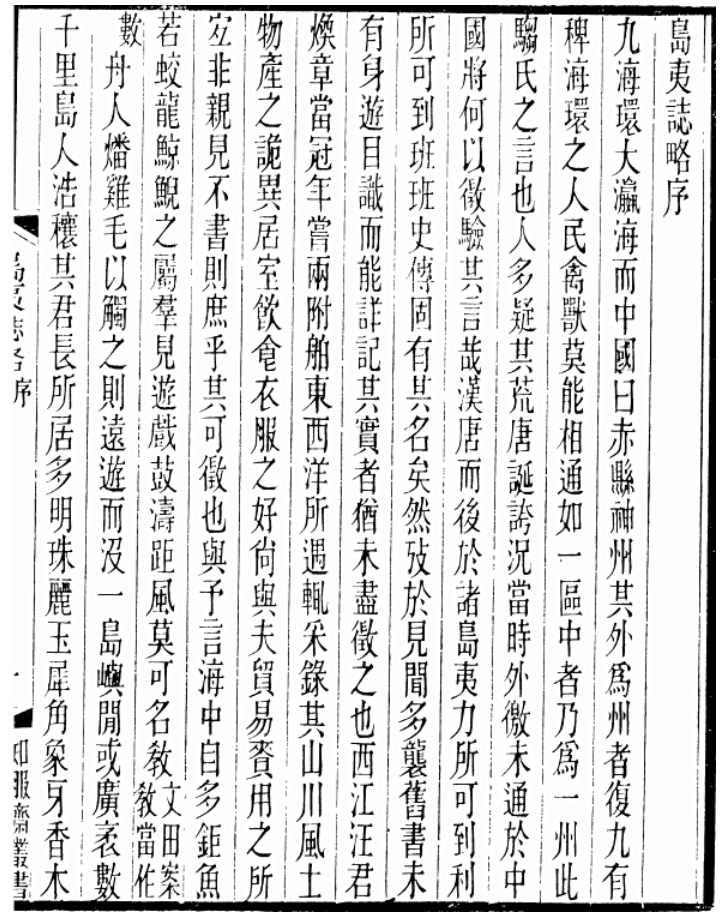 島夷誌略序
九海環大瀛海而中國曰赤縣神州其外爲州者復九有
稗海環之人民禽獸莫能相通如一區中者乃爲一州此
騶氏之言也人多疑其荒唐誕誇況當時外徼未通於中
國將何以徵驗其言哉漢唐而後於諸島夷力所可到利
所可到班班史傳固有其名矣然攷於見聞多襲舊書未
有身遊目識而能詳記其實者猶未盡徵之也西江汪君
煥章當冠年嘗兩附舶東西洋所過輒采錄其山川風土
物產之詭異居室飲食衣服之好尙與夫貿易賚用之所
宐非親見不書則庶乎其可徵也與予言海中自多鉅魚
若蛟龍鯨鯢之屬羣見遊戲鼓濤距風莫可名敎文田案敎當作
數舟人燔雞毛以觸之則遠遊而沒一島嶼閒或廣袤數
千里島人浩穰其君長所居多明珠麗玉犀角象牙香木
島夷志略序
一
知服齋叢書